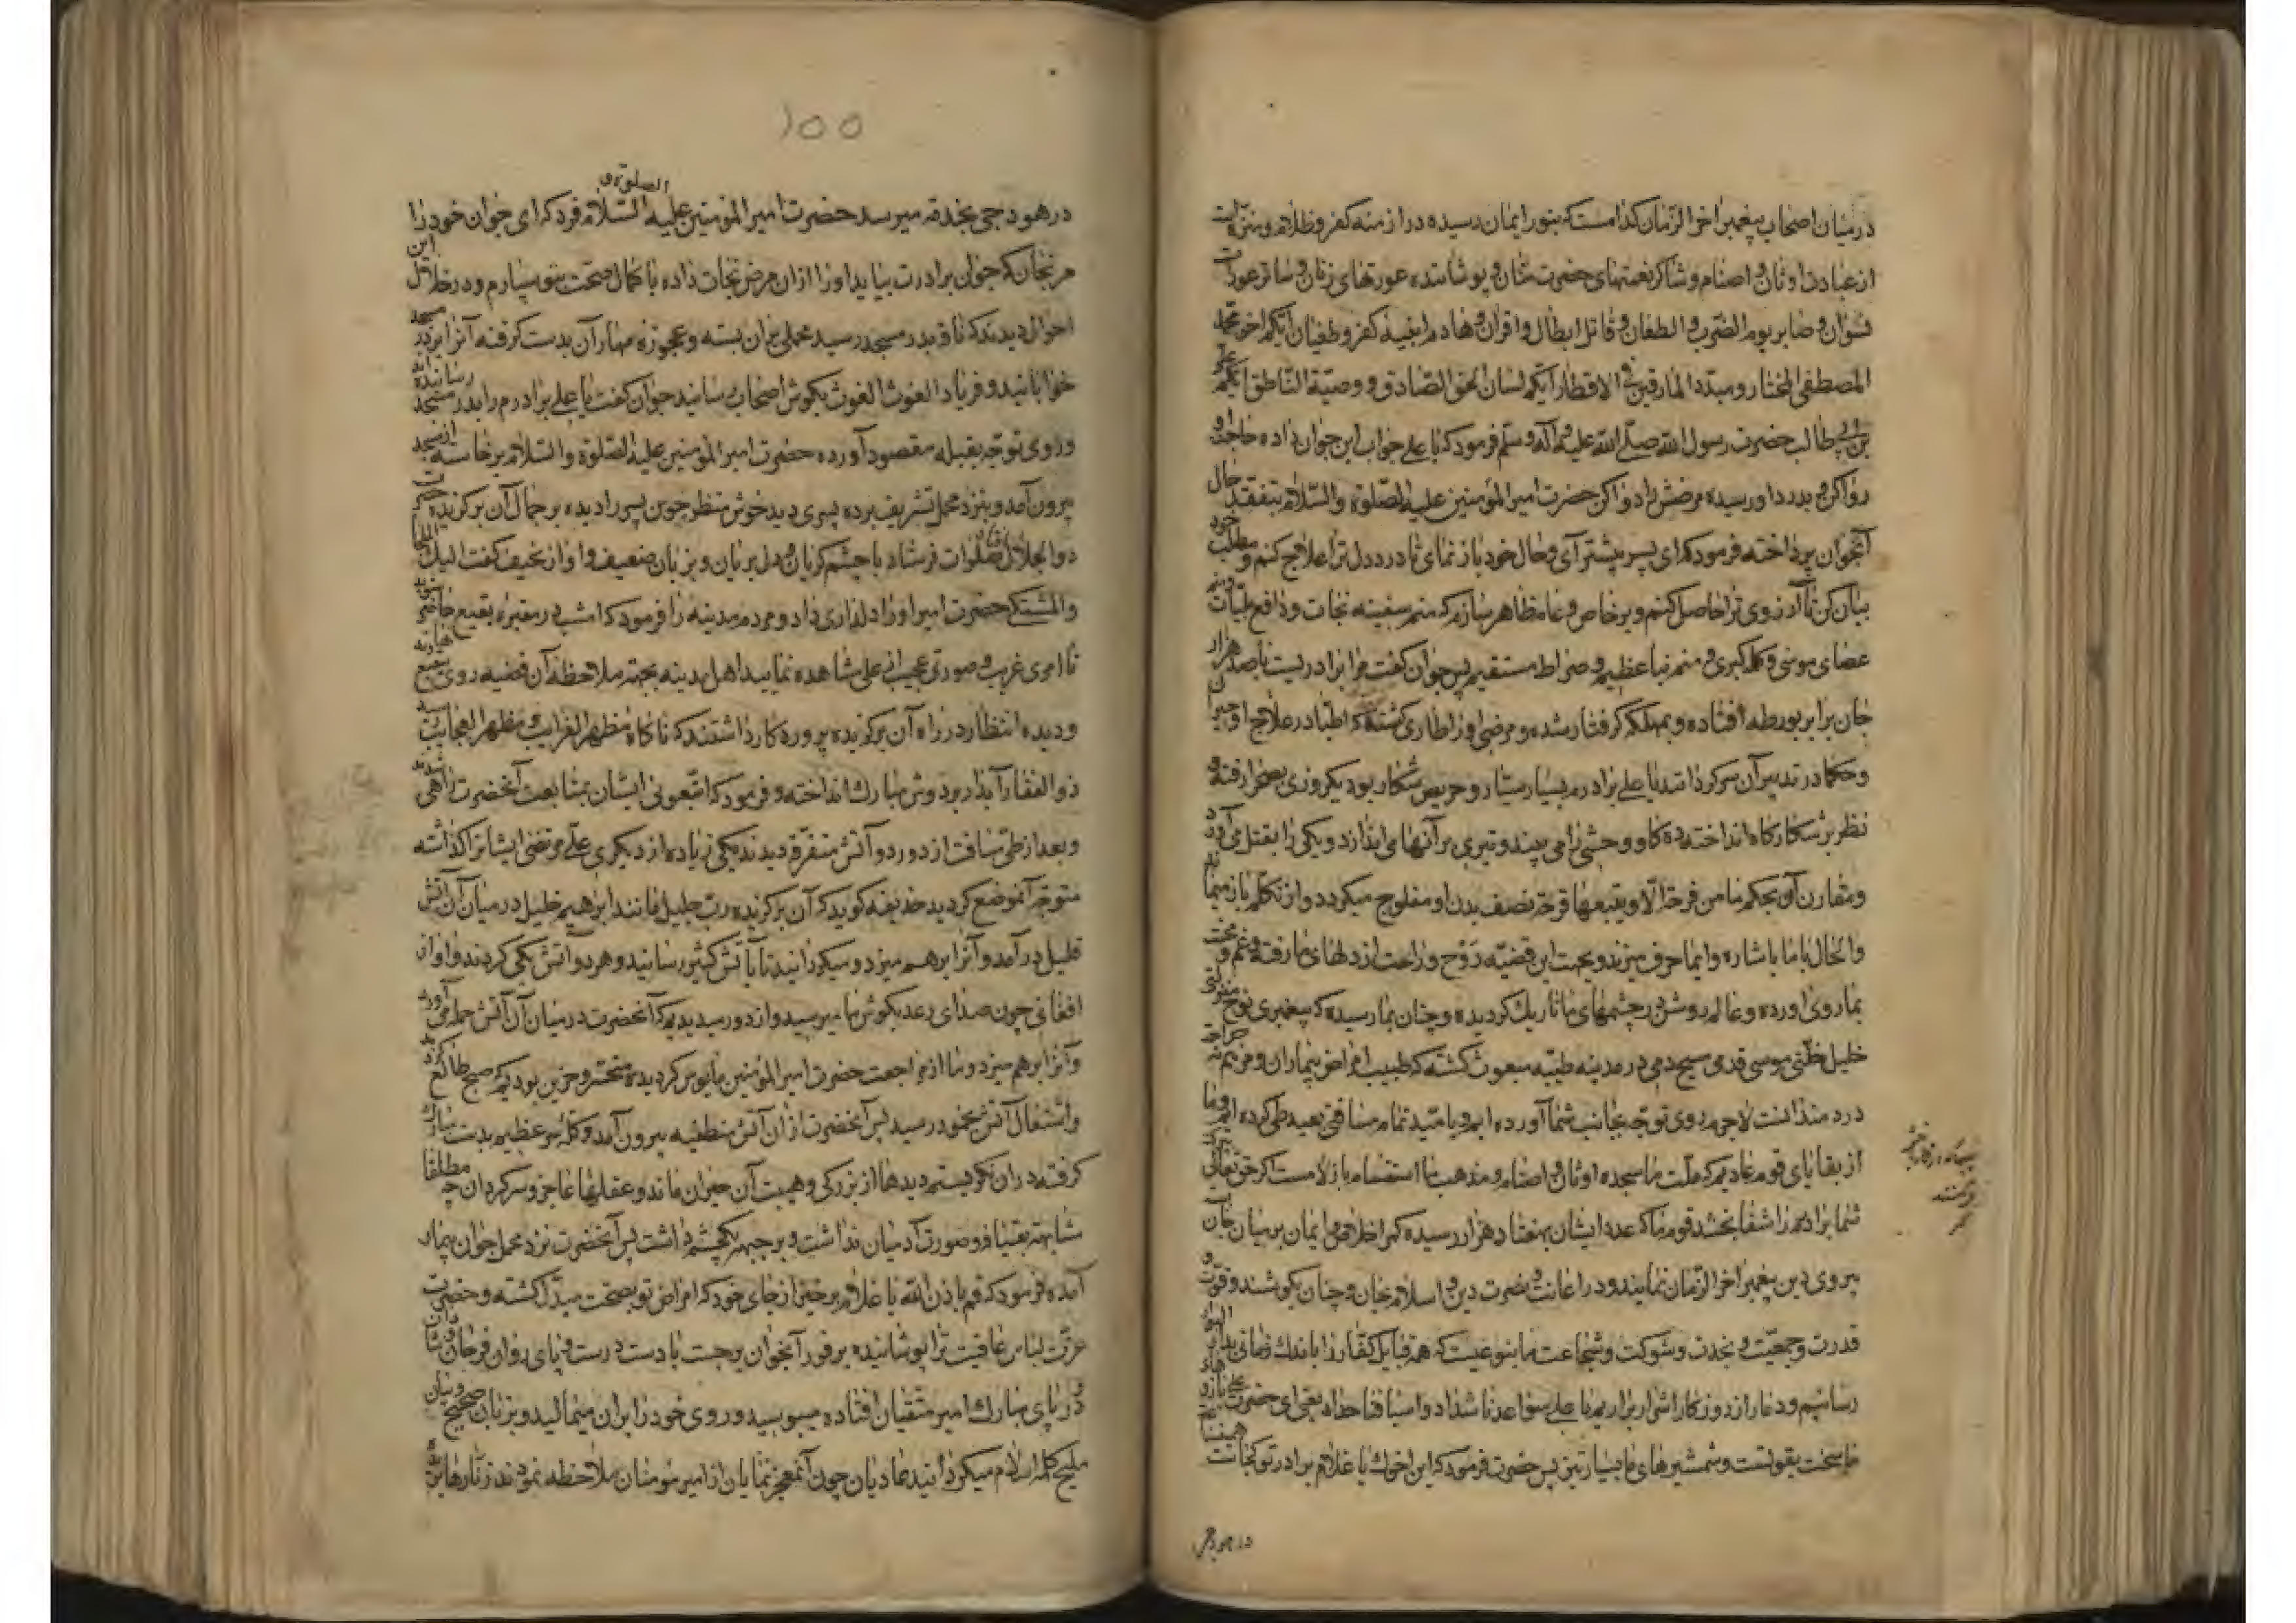 در میان اصحاب پیغمبر اخر الزمان کدامست که بنور ایمان رسیده در ازمنه کفر و ظلام و منزه است
از عبادت اوثان و اصنام و شاکر نعمتهای حضرت منان و پوشاننده عورتهای زنان و ساتر عورات
نسوان و صابر یوم الضرب و الطعان و قاتل ابطال و اقران و هادم ابنیه کفر و طغیان ایکم اخو محمد
المصطفی المختار و مبدد المارقین فی الاقطار ایکم لسان الحق الصادق و وصیه الناطق ایکم علی
بن ابی طالب حضرت رسول الله صلی الله علیه و اله و سلم فرمود که یا علی جواب این جوان داده حاجت او
روا کن و بدرد او رسیده مرضش را دوا کن حضرت امیر المؤمنین علیه الصلوة والسلام بتفقد حال
آنجوان پرداخته فرمود که ای پسر پیشتر آی و حال خود باز نمای تا درد دل ترا علاج کنم و مطلب خود
بیان کن تا آرزوی ترا حاصل کنم و بر خاص و عام ظاهر سازم که منم سفینه نجات و دافع بلیات و منم
عصای موسی و کلمه کبری و منم نبا عظیم و صراط مستقیم پس جوان گفت مرا برادریست با صد هزار
جان برابر بورطه افتاده و بمهلکه گرفتار شده و مرضی او را طاری گشته که اطبا در علاج او حیرانند
و حکما در تدبیر آن سرگردانند یا علی برادرم بسیار و حریص شکار بود یکروزی بصحرا رفته و
نظر بر شکارگاه انداخته ده گاو وحشی را می بیند و تیری بر آنها می اندازد و یکی را بقتل می آورد
و مقارن آن بحکم ما من فرحة الا و یتبعها قرحة نصف بدن او مفلوج میگردد و از تکلم باز میماند
و الحال با ما باشاره و ایما حرف میزند و بجهت این قضیه روح و راحت از دلهای ما رفته و غم و محنت
بما روی آورده و عالم روشن در چشمهای ما تاریک گردیده و چنان بما رسیده که پیغمبری نوح منزلتی
خلیل خلتی موسی قدمی مسیح دمی در مدینه طیبه مبعوث گشته که طبیب امراض بیماران و مرهم نه جراحت
دردمندانست لاجرم روی توجه بجانب شما آورده ایم و بامید تمام مسافتی بعید طی کرده ایم و ما
از بقایای قوم عادیم که ملت ما سجده اوثان و اصنام و مذهب ما استقسام بازلامست اگر حق تعالی ببرکت
شما برادرم را شفا بخشد قوم ما که عدد ایشان بهفتاد هزار رسیده کمر اخلاص ایمان بر میان جان
پیروی دین پیغمبر اخر الزمان نمایند و در اعانت و نصرت دین و اسلام بجان و جنان بکوشند و قوت و
قدرت و جمعیت و نجدت و شوکت و شجاعت ما بنوعیست که همه قبایل کفار را باندک زمانی
رسانیم و دمار از روزگار اشرار براریم یا علی سواعدنا شداد و اسیافنا حداد یعنی ای حضرت علی بازوهای
ما سخت بقوتست و شمشیرهای ما بسیار تیز پس حضرت فرمود که این اخوک یا غلام برادر تو کجاست
در هودجی
۱۵۵
الصلوة و
در هودجی بخدمت میرسد حضرت امیر المؤمنین علیه السلام فرمود که ای جوان خود را
مرنجان که چون برادرت بیاید او را ازان مرض نجات داده با کمال صحت بتو سپارم و در خلال این
احوال دیدند که ناقه بدر مسجد رسید محملی بران بسته و عجوزه مهار آن بدست گرفته آنرا بر در مسجد
خوابانید و فریاد الغوث الغوث بگوش اصحاب رسانید جوان گفت یا علی برادرم را بدر مسجد رسانیده اند
و روی توجه بقبله مقصود آورده حضرت امیر المؤمنین علیه الصلوة والسلام برخاسته از مسجد
بیرون آمد و بنزد محمل تشریف برده پسری دید خوش منظر چون پسر را دیده بر جمال آن برگزیده حضرت
ذو الجلال افتاد صلوات فرستاد با چشم گریان و دل بریان و بزبان ضعیف و اواز نحیف گفت الیک الملجا
و المشتکی حضرت امیر او را دلداری داد و مردم مدینه را فرمود که امشب در مقبره بقیع حاضر شوید
تا امری غریب و صورتی عجیب از علی مشاهده نمایید اهل مدینه بجهت ملاحظه آن قضیه روی بقیع نهادند
و دیده انتظار در راه آن برگزیده پروردگار داشتند که ناگاه مظهر الغرایب و مظهر العجایب رسید
ذو الفقار آبدار بر دوش مبارک انداخته و فرمود که اتبعونی ایشان بمتابعت آنحضرت راهی شدند
و بعد از طی مسافت از دور دو آتش متفرق دیدند یکی زیاده از دیگری علی مرتضی ایشانرا گذاشته
متوجه آنموضع گردید حذیفه گوید که آن برگزیده رب جلیل مانند ابرهیم خلیل در میان آن آتش
قلیل در آمد و آنرا برهم میزد و میگردانید تا بآتش کثیر رسانید و هر دو آتش یکی کردند و اواز
افغانی چون صدای رعد بگوش ما میرسید و از دور میدیدیم که آنحضرت در میان آن آتش حمله می آورد
و آنرا برهم میزد و ما از مراجعت حضرت امیر المؤمنین مایوس گردیده متحسر و حزین بودیم که صبح طالع گردید
و اشتعال آتش بخمود رسید پس آنحضرت ازان آتش منطفیه بیرون آمد و کله سر عظیم بدست مبارک
گرفته دران نگریستیم دیدها از بزرگی و هیبت آن حیران ماند و عقلها عاجز و سرگردان چه مطلقا
مشابهتی بقیافه و صورت آدمیان نداشت و بر جبهه یکچشم داشت پس آنحضرت نزد محمل جوان بیمار
آمده فرمود که قم باذن الله یا غلام برخیز از جای خود که امراض تو بصحت مبدل گشته و حضرت
عزت لباس عافیت ترا پوشانیده بر فور آنجوان برجست با دست درست و پای روان فرحان و شادان
در پای مبارک امیر متقیان افتاده میبوسید و روی خود را بران میمالید و بزبان صحیح و بیان
ملیح کلمه اسلام میگردانید عادیان چون آنمعجز نمایان از امیر مؤمنان ملاحظه نمودند زنارها